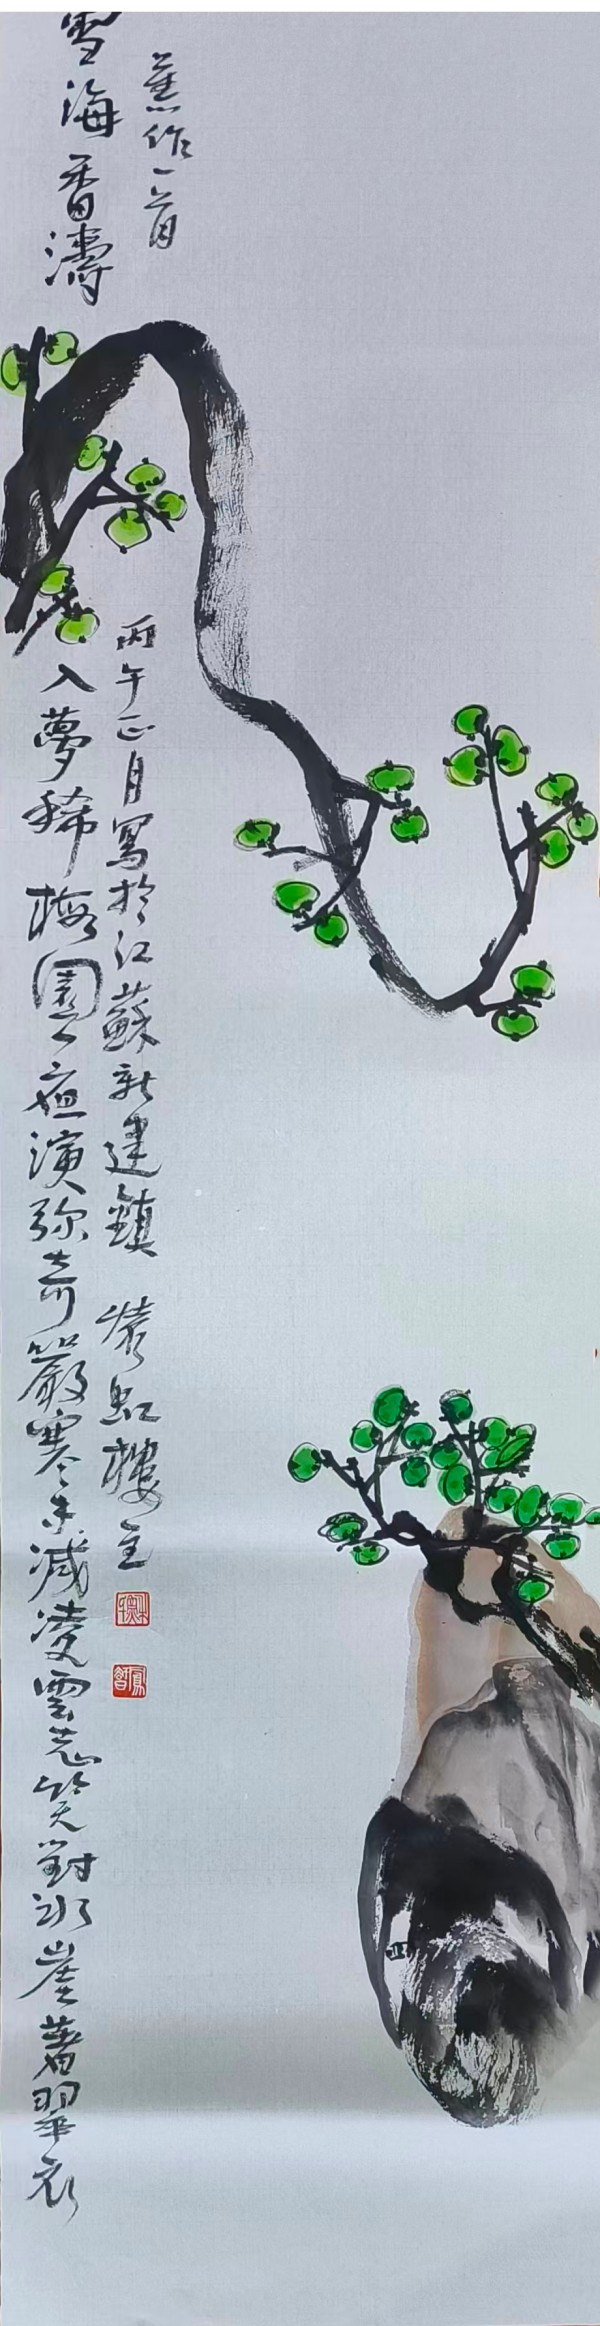 雪海香濤
入夢稀梅園夜演弥奇嚴寒未減凌雲志笑對冰崖著翠衣
作一首
丙午正月寫於江蘇新建鎮 虹樓主